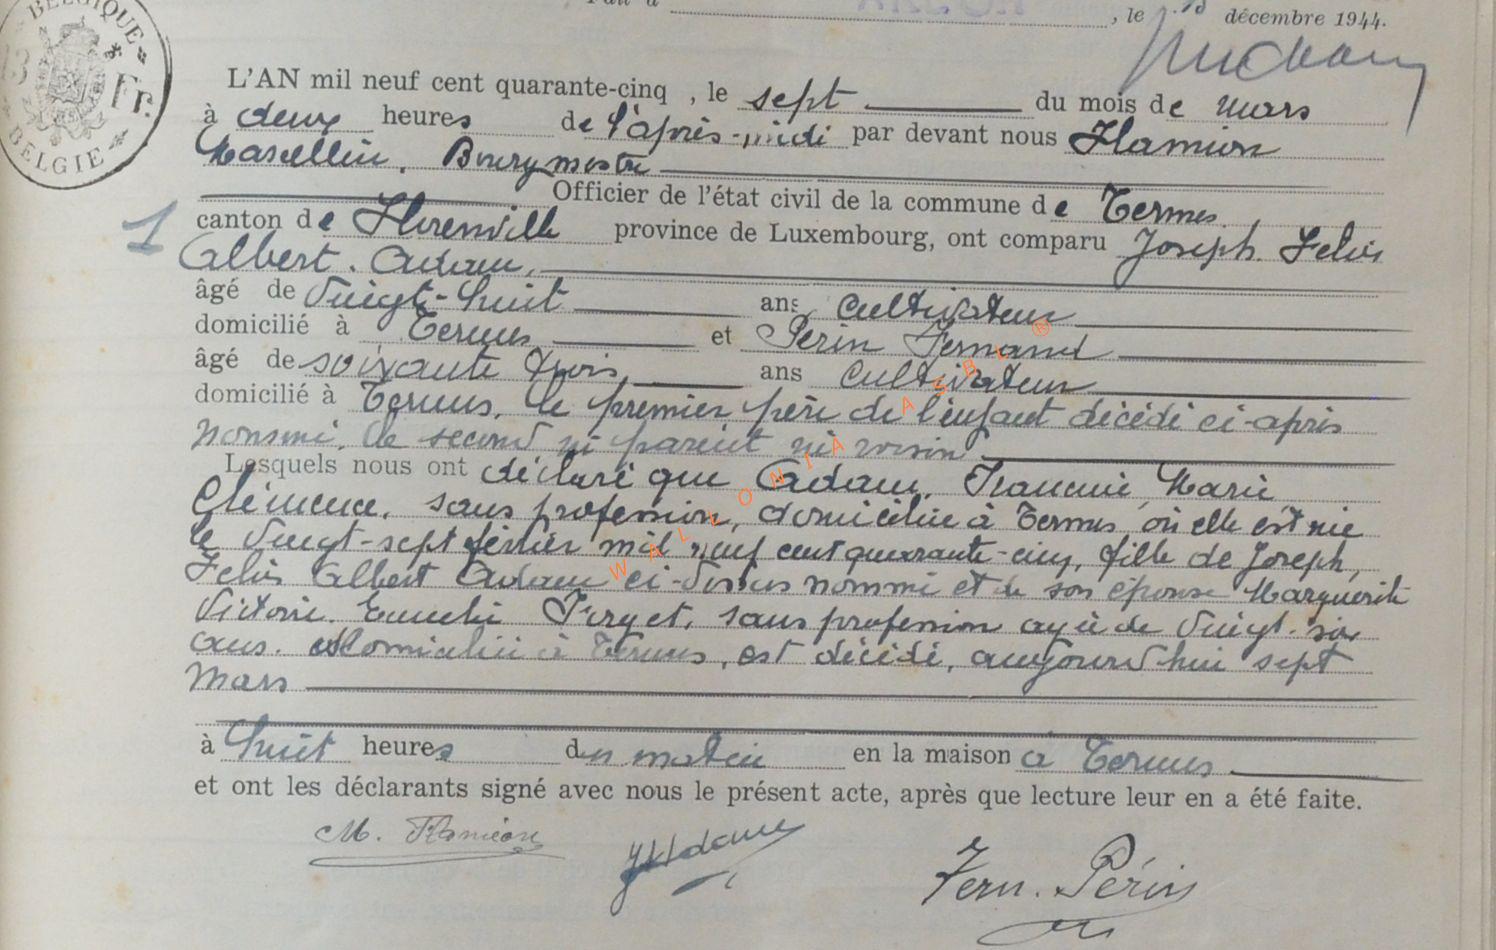 BELGIQUE
FR.
BELGIE
, le décembre 1944.
L'AN mil neuf cent quarante-cinq , le sept du mois de mars
à deux heures de l'après-midi par devant nous Hamion
Marcellin, Bourgmestre
Officier de l'état civil de la commune de Termes,
1
canton de Florenville province de Luxembourg, ont comparu Joseph Felix
Albert Adam,
âgé de vingt-huit ans cultivateur
domicilié à Termes et Périn Fernand
âgé de soixante trois ans cultivateur
domicilié à Termes, le premier père de l'enfant décédé ci-après
nommé, le second ni parent ni voisin
Lesquels nous ont déclaré que Adam, Francine Marie
Clémence, sans profession, domiciliée à Termes où elle est née
le vingt-sept février mil neuf cent quarante-cinq, fille de Joseph,
Felix Albert Adam ci-dessus nommé et de son épouse Marguerite
Victoire sans profession agée de vingt-six
ans domiciliée à Termes, est décédé, aujourd'hui sept
mars
à huit heures du matin en la maison à Termes
et ont les déclarants signé avec nous le présent acte, après que lecture leur en a été faite.
M. Hamion
JAdam
Fern. Périn
WALLONIA ASBL ®